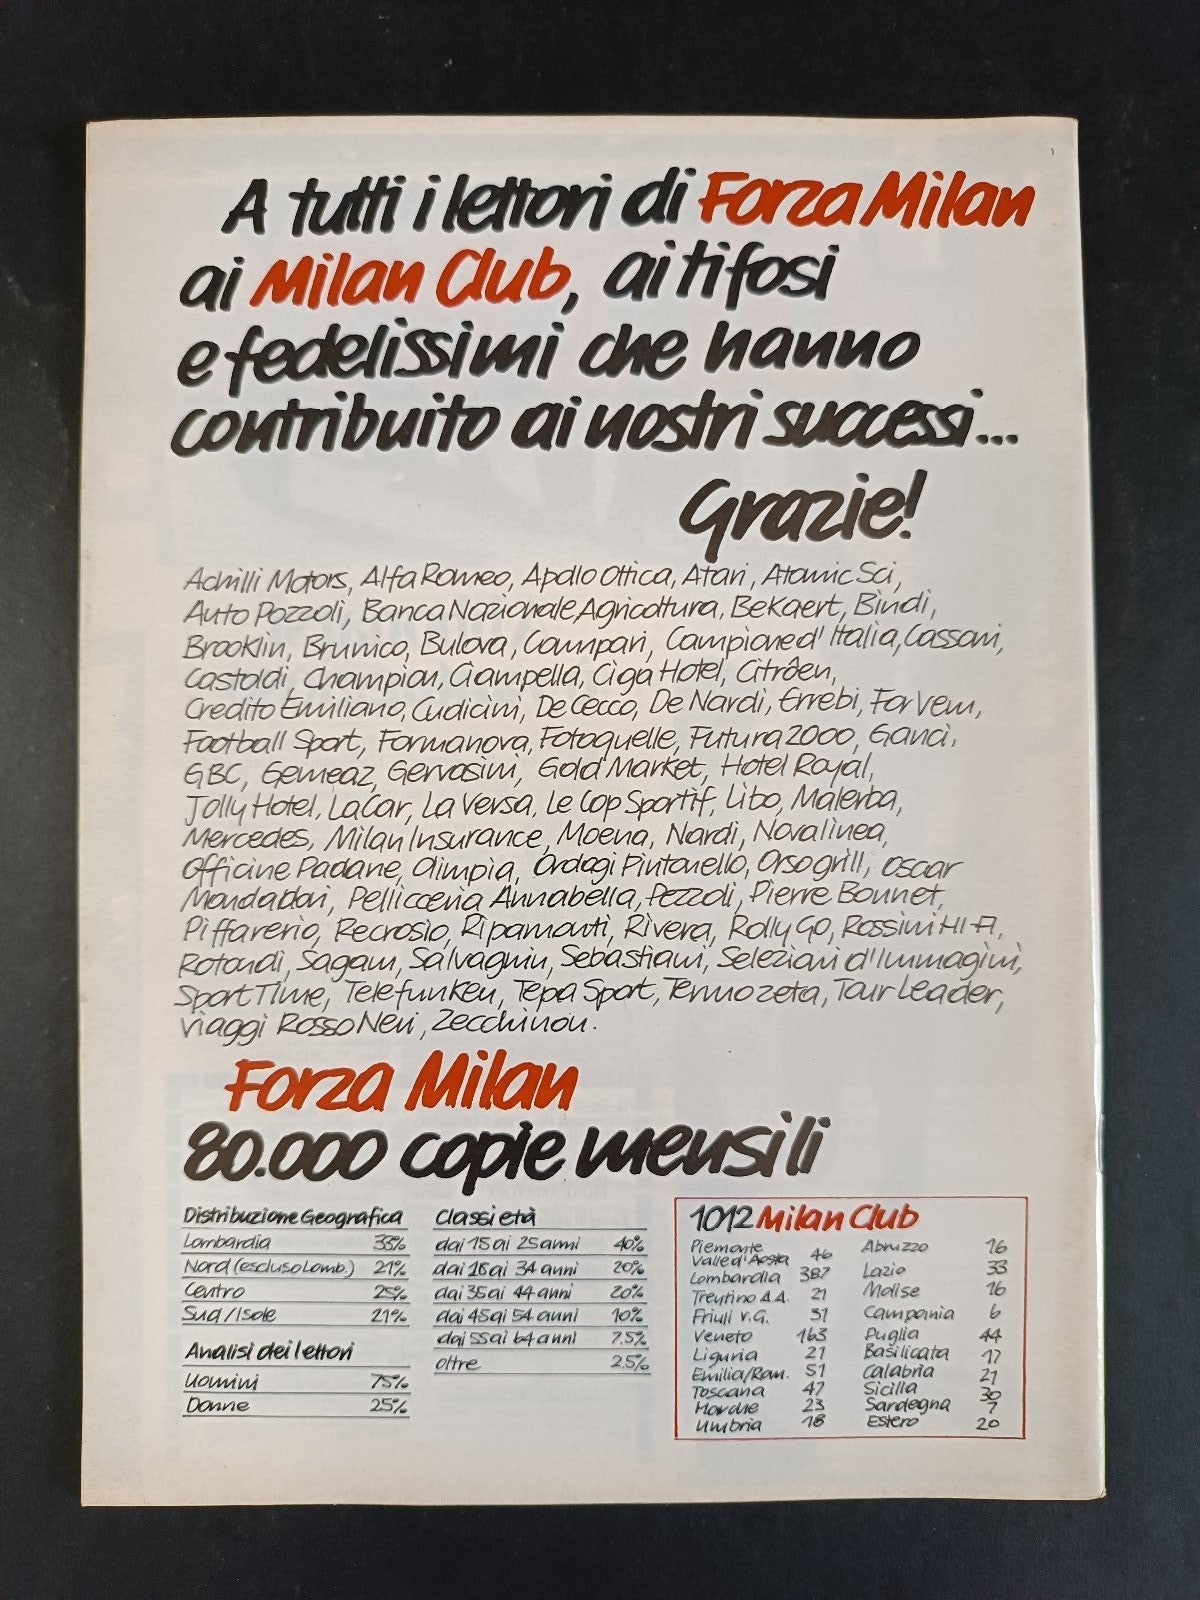 A tutti i lettori di Forza Milan
ai Milan Club, ai tifosi
e fedelissimi che hanno
contribuito ai nostri successi...
Grazie!
Achilli Motors, Alfa Romeo, Apollo Ottica, Atari, Atomic Sci,
Auto Pozzoli, Banca Nazionale Agricoltura, Bekaert, Bindi,
Brooklin, Brunico, Bulova, Campari, Campione d'Italia, Cassani,
Castoldi, Champion, Ciampella, Ciga Hotel, Citröen,
Credito Emiliano, Cudicini, De Cecco, De Nardi, Errebi, For Vem,
Football Sport, Formanova, Fotoquelle, Futura 2000, Ganci,
GBC, Gemeaz, Gervasini, Gold Market, Hotel Royal,
Jolly Hotel, La Car, La Versa, Le Cop Sportif, Libo, Malerba,
Mercedes, Milan Insurance, Moena, Nardi, Novalinea,
Officine Padane, Olimpia, Orologi Pintonello, Orsogrill, Oscar
Mondadori, Pellicceria Annabella, Pezzoli, Pierre Bonnet,
Piffarerio, Recrosio, Ripamonti, Rivera, Rolly Go, Rossini HI-FI,
Rotondi, Sagam, Salvagnin, Sebastiani, Selezioni d'Immagini,
Sport Time, Telefunken, Tepa Sport, Termozeta, Tour Leader,
Viaggi RossoNeri, Zecchinon.
Forza Milan
80.000 copie mensili
Distribuzione Geografica
Lombardia 33%
Nord (escluso Lomb.) 21%
Centro 25%
Sud/Isole 21%
Analisi dei lettori
Uomini 75%
Donne 25%
Classi età
dai 15 ai 25 anni 40%
dai 18 ai 34 anni 20%
dai 35 ai 44 anni 20%
dai 45 ai 54 anni 10%
dai 55 ai 64 anni 7.5%
oltre 2.5%
1012 Milan Club
Piemonte
Valle d'Aosta 46
Lombardia 387
Trentino A.A. 21
Friuli V.G. 31
Veneto 163
Liguria 21
Emilia/Rom. 51
Toscana 47
Marche 23
Umbria 18
Abruzzo 16
Lazio 33
Molise 16
Campania 6
Puglia 44
Basilicata 17
Calabria 21
Sicilia 30
Sardegna 7
Estero 20